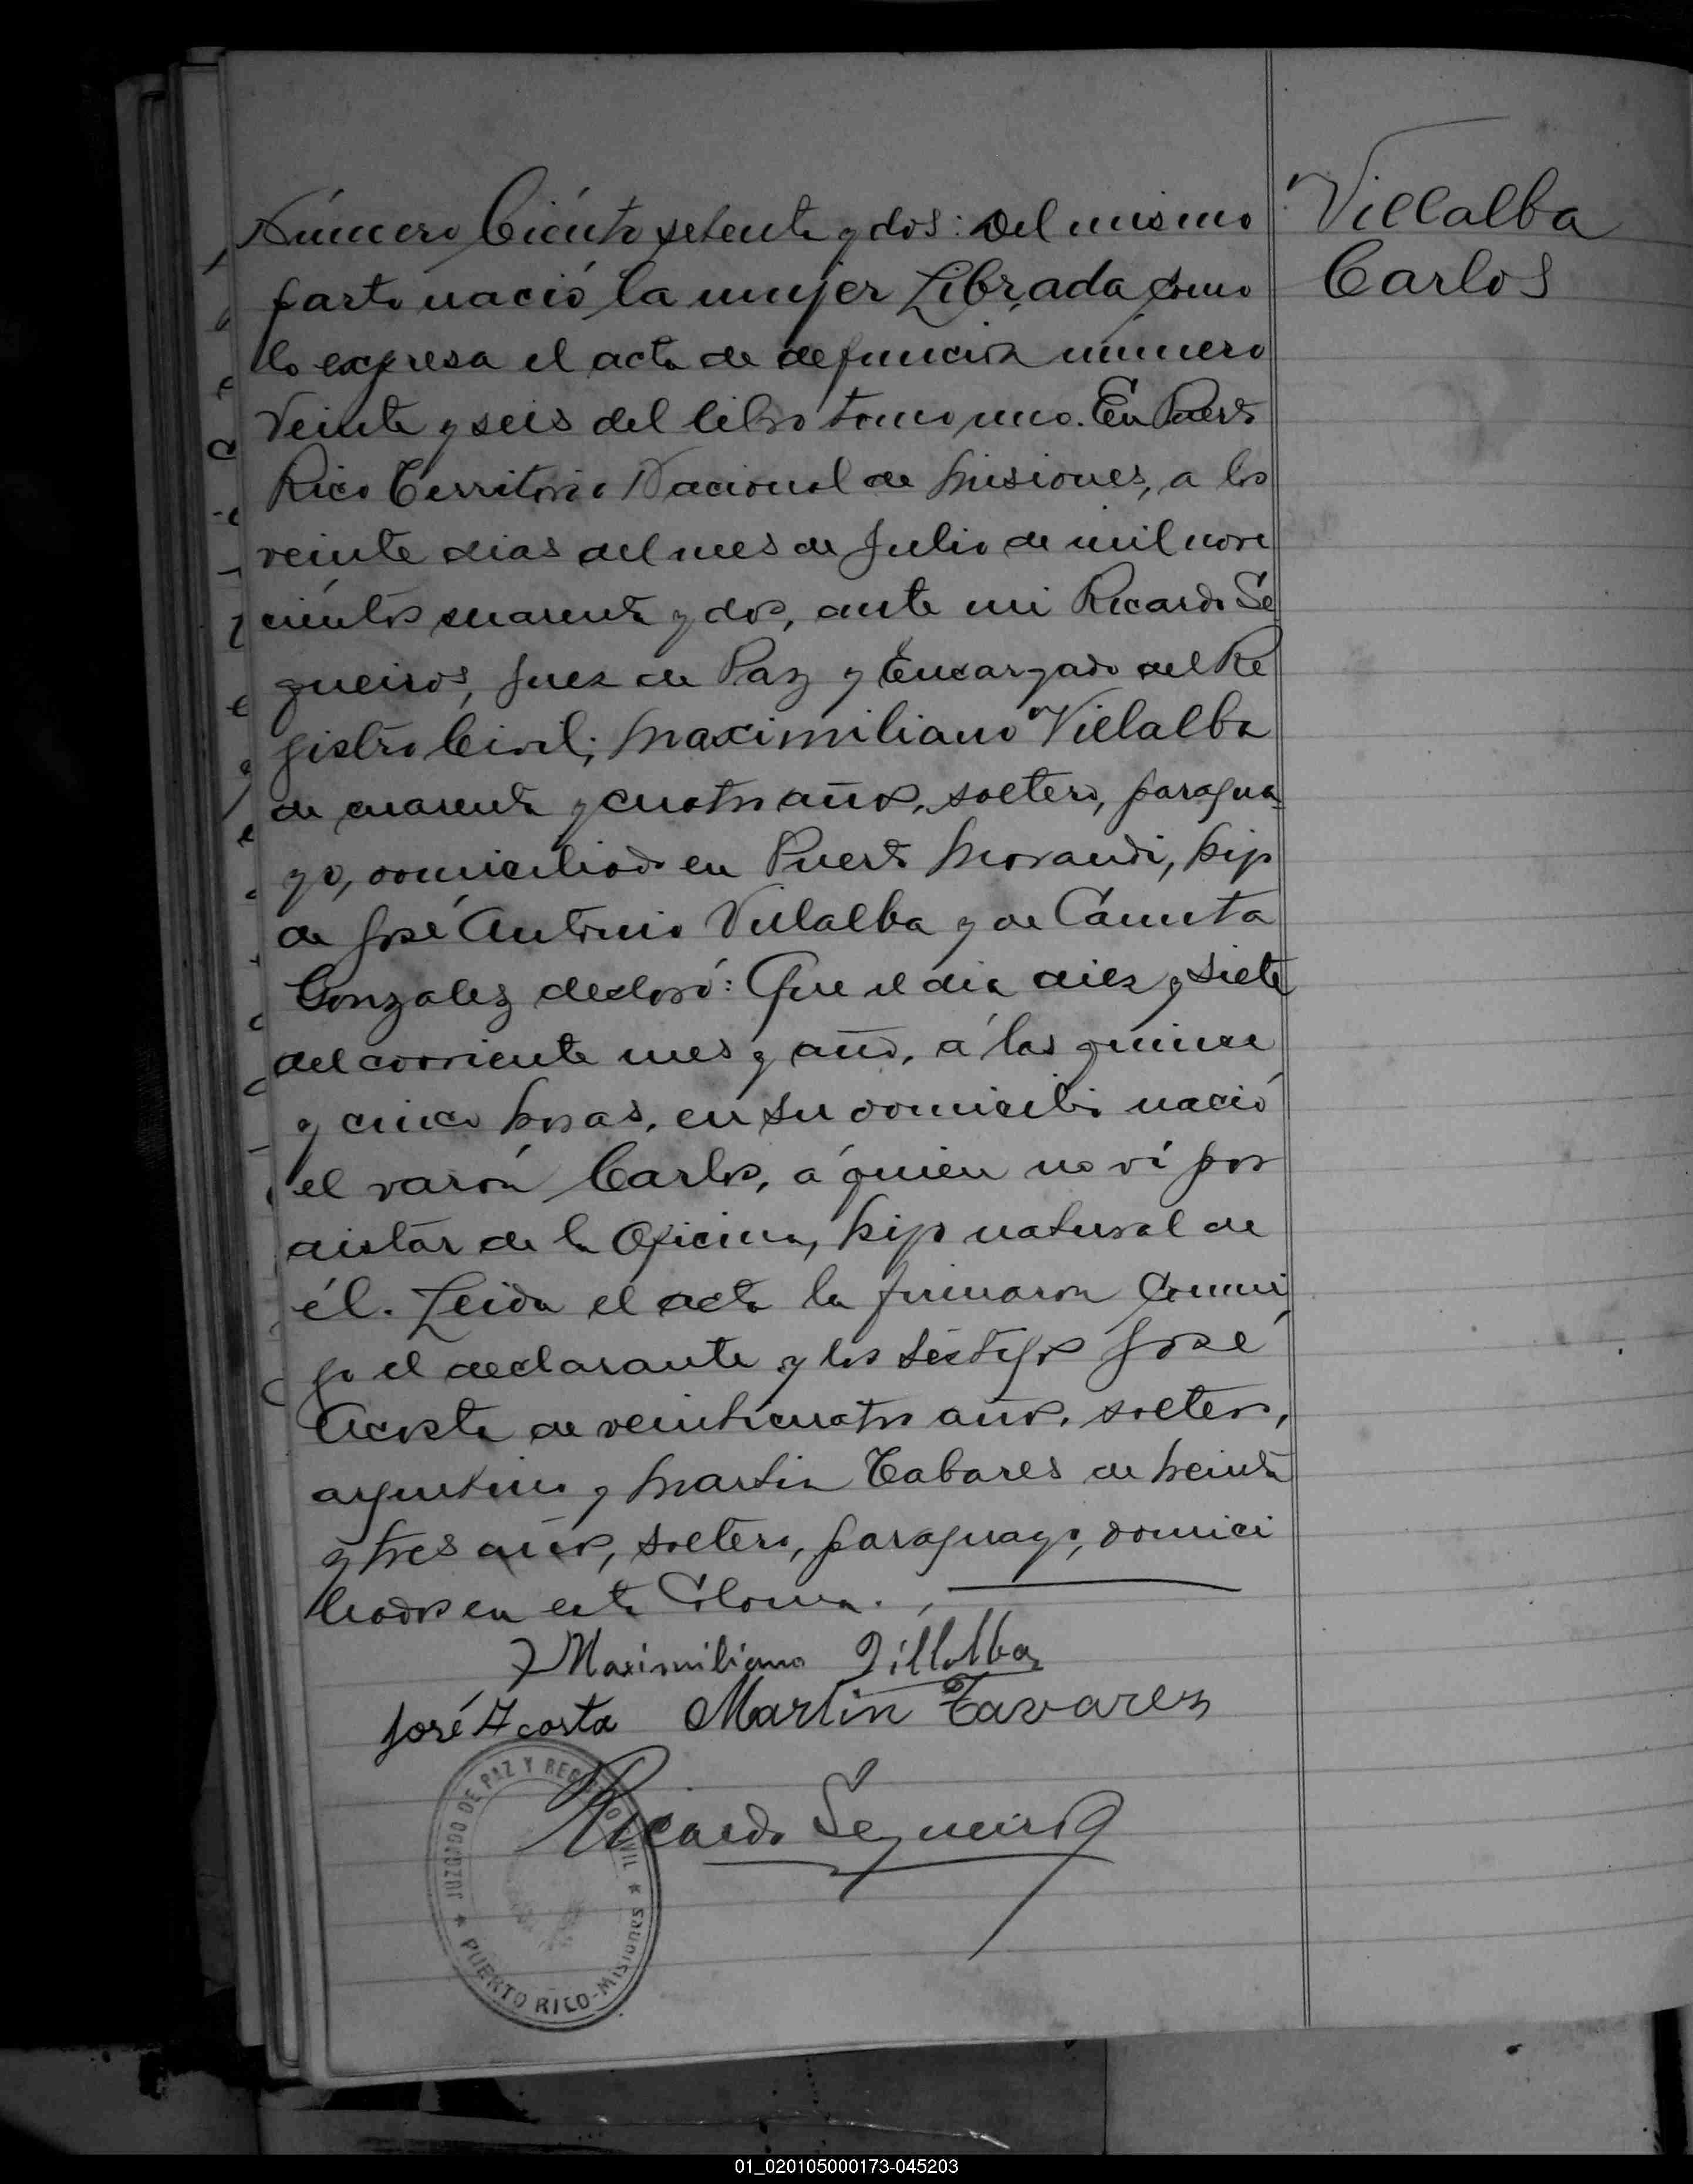 Número Ciento setenta y dos: Del mismo
parto nació la mujer Librada como
lo expresa el acta de defunción número
veinte y seis del libro tomo uno. En Puerto
Rico Territorio Nacional de Misiones, a los
veinte dias del mes de Julio de mil nove
cientos cuarenta y dos, ante mi Ricardo Se
queiros, Juez de Paz y Encargado del Re
gistro Civil; Maximiliano Villalba
de cuarenta y cuatro años, soltero, paragua
yo, domiciliado en Puerto Morandi, hijo
de José Antonio Villalba y de Canuta
Gonzalez declaró: Que el dia diez y siete
del corriente mes y año, á las quince
y cinco horas, en su domicilio nació
el varón Carlos, á quien no ví por
distar de la Oficina, hijo natural de
él. Leida el acta la firmaron conmi
go el declarante y los testigos José
Acosta de veinticuatro años, soltero,
argentino y Martin Tabares de treinta
y tres años, soltero, paraguayo, domici
liados en esta Colonia.
Maximiliano Villalba
José Acosta Martin Tavarez
Ricardo Sequeiros
JUZGADO DE PAZ Y REGISTRO CIVIL
PUERTO RICO-MISIONES
Villalba
Carlos
01_020105000173-045203